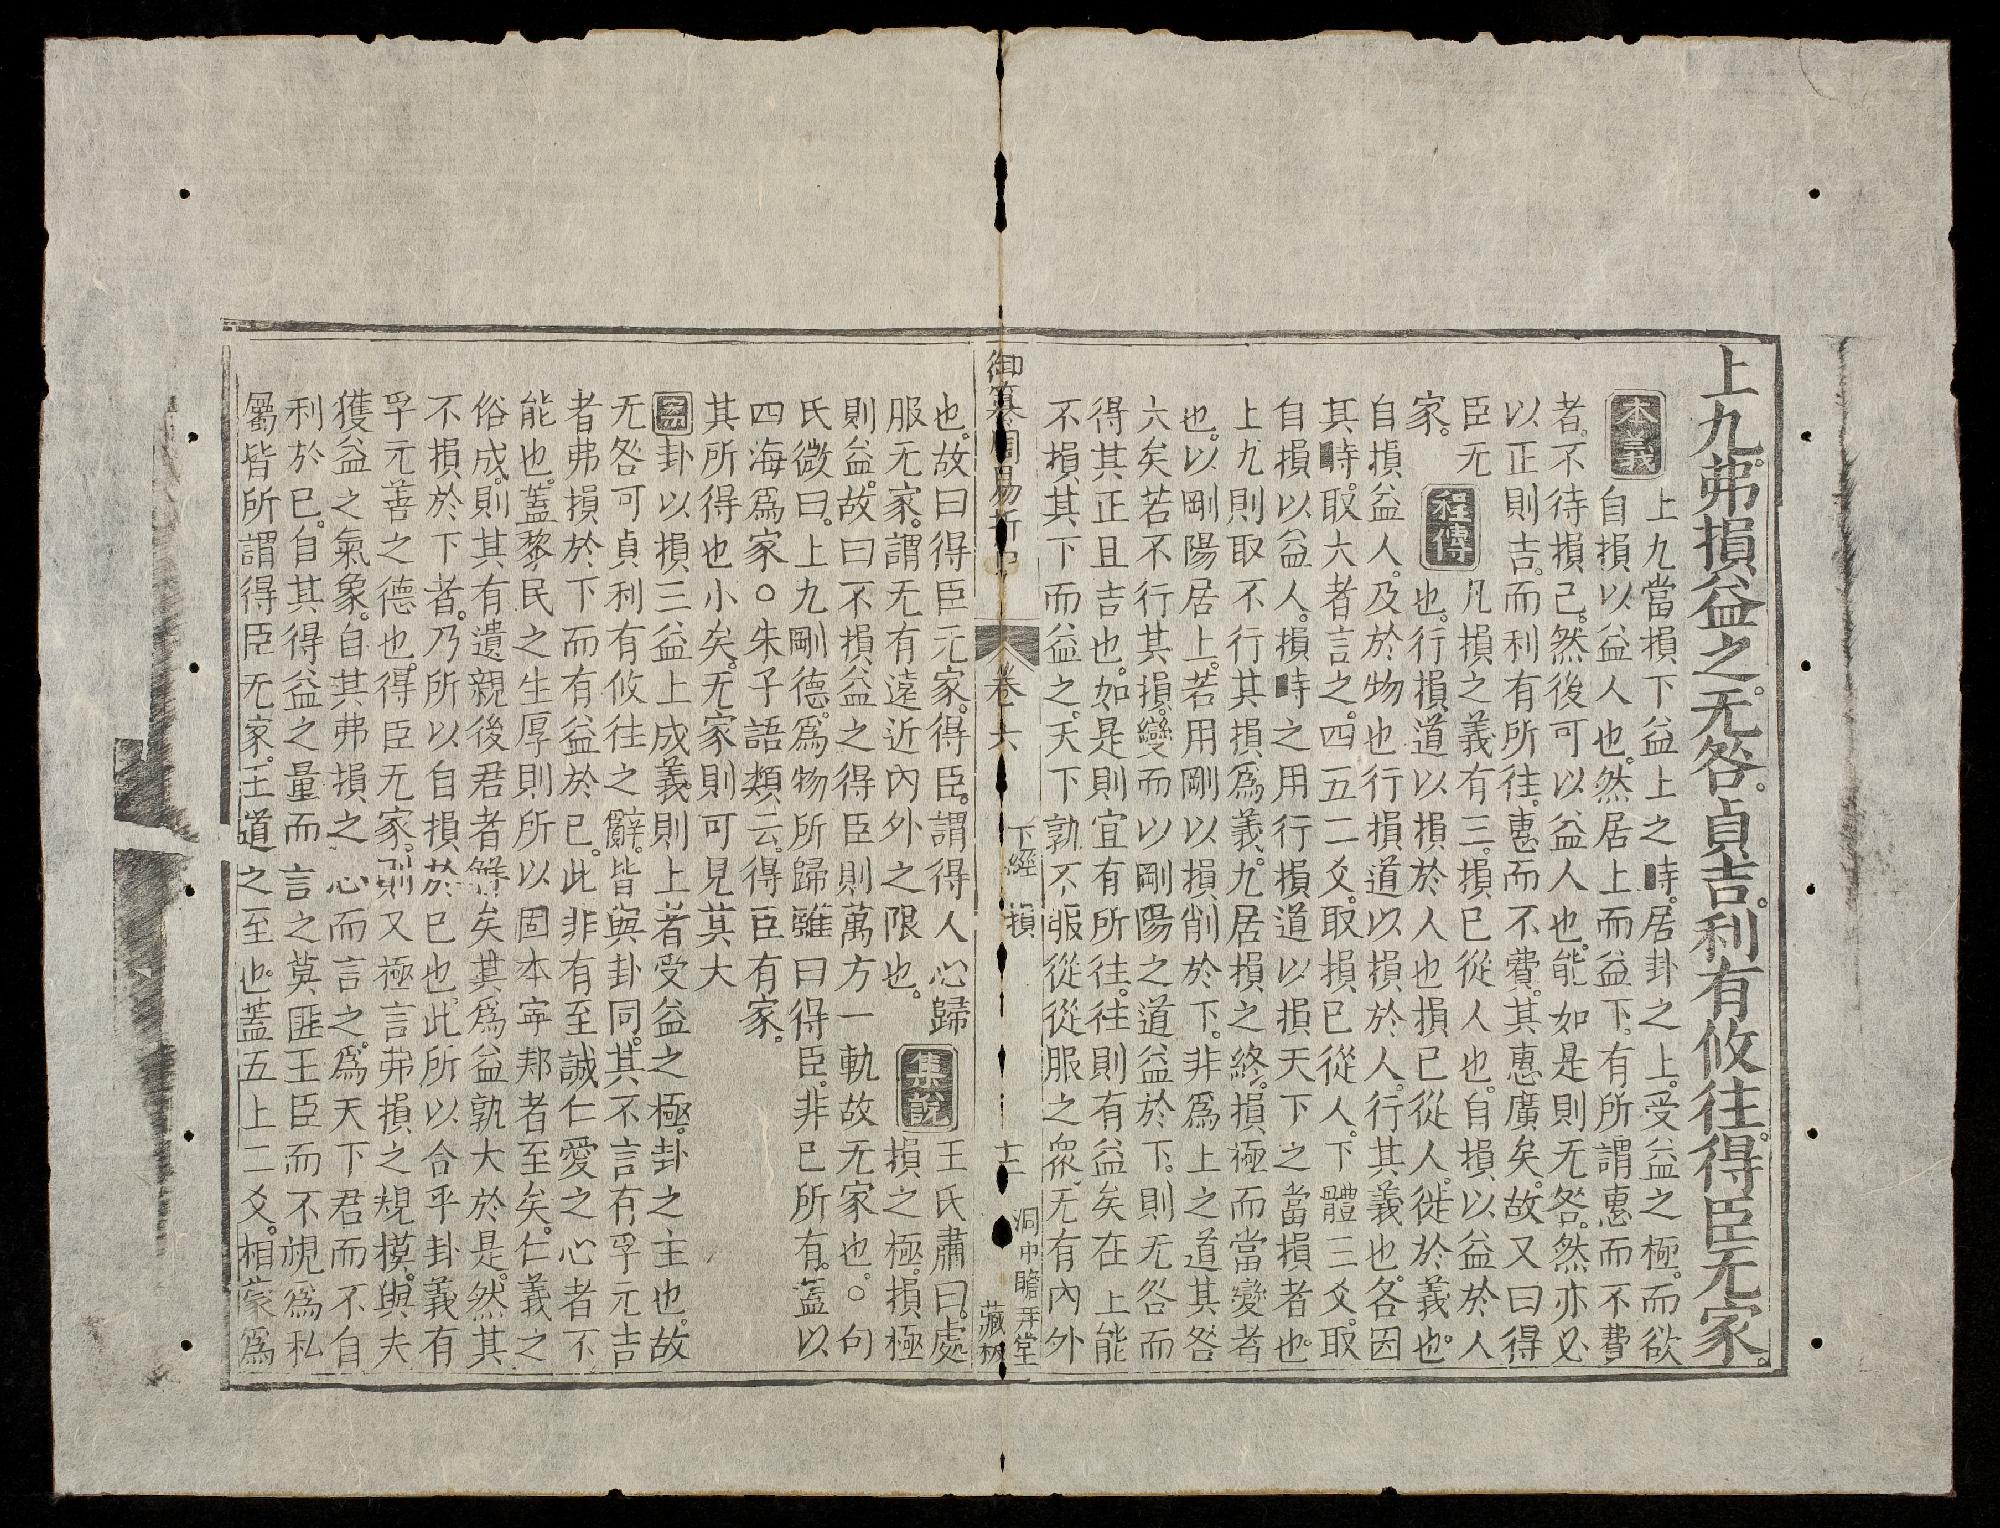 上九。弗損益之。无咎。貞吉。利有攸往。得臣无家。
本義
上九當損下益上之時。居卦之上。受益之極。而欲
自損以益人也。然居上而益下。有所謂惠而不費
者。不待損己。然後可以益人也。能如是則无咎。然亦必
以正則吉。而利有所往。惠而不費。其惠廣矣。故又曰得
臣无
家。
程傳
凡損之義有三。損已從人也。自損以益於人
也。行損道以損於人也損已從人。徙於義也。
自損益人。及於物也行損道以損於人。行其義也。各因
其時。取大者言之。四五二爻。取損已從人。下體三爻。取
自損以益人。損時之用行損道以損天下之當損者也。
上九則取不行其損爲義。九居損之終。損極而當變者
也。以剛陽居上。若用剛以損削於下。非爲上之道其咎
大矣若不行其損。變而以剛陽之道益於下。則无咎而
得其正且吉也。如是則宜有所往。往則有益矣在上能
不損其下而益之。天下孰不服從從服之衆。无有內外
御纂周易折中
卷六
下經
損
十二
洞中瞻斗堂
藏板
也。故曰得臣无家。得臣。謂得人心歸
服无家。謂无有遠近內外之限也。
集說
王氏肅曰。處
損之極。損極
則益。故曰不損益之得臣則萬方一軌故无家也。○句
氏微曰。上九剛德。爲物所歸雖曰得臣。非已所有。蓋以
四海爲家○朱子語類云。得臣有家。
其所得也小矣。无家則可見其大
案
卦以損三益上成義。則上者受益之極。卦之主也。故
无咎可貞利有攸往之辭。皆與卦同。其不言有孚元吉
者弗損於下而有益於已。此非有至誠仁愛之心者不
能也。蓋黎民之生厚則所以固本寧邦者至矣。仁義之
俗成。則其有遺親後君者鮮矣其爲益孰大於是。然其
不損於下者。乃所以自損於已也。此所以合乎卦義有
孚元善之德也。得臣无家。則又極言弗損之規模。與夫
獲益之氣象。自其弗損之心而言之。爲天下君而不自
利於已。自其得益之量而言之莫匪王臣而不視爲私
屬皆所謂得臣无家。王道之至也。蓋五上二爻。相蒙爲